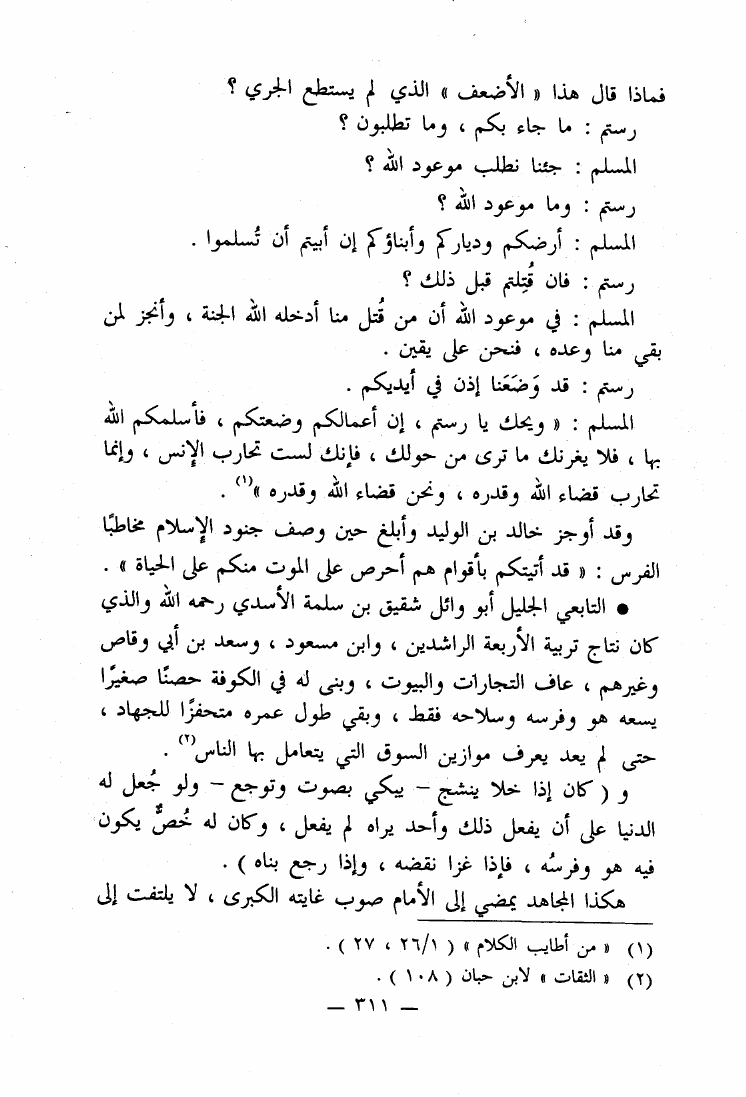 فماذا قال هذا « الأضعف » الذي لم يستطع الجري ؟
رستم : ما جاء بكم ، وما تطلبون ؟
المسلم : جئنا نطلب موعود الله ؟
رستم : وما موعود الله ؟
المسلم : أرضكم ودياركم وأبناؤكم إن أبيتم أن تُسلموا .
رستم : فان قُتِلتم قبل ذلك ؟
المسلم : في موعود الله أن من قُتل منا أدخله الله الجنة ، وأنجز لمن
بقي منا وعده ، فنحن على يقين .
رستم : قد وَضَعَنا إذن في أيديكم .
المسلم : « ويحك يا رستم ، إن أعمالكم وضعتكم ، فأسلمكم الله
بها ، فلا يغرنك ما ترى من حولك ، فإنك لست تحارب الإنس ، وإنما
تحارب قضاء الله وقدره ، ونحن قضاء الله وقدره »(١) .
وقد أوجز خالد بن الوليد وأبلغ حين وصف جنود الإسلام مخاطبًا
الفرس : « قد أتيتكم بأقوام هم أحرص على الموت منكم على الحياة » .
● التابعي الجليل أبو وائل شقيق بن سلمة الأسدي رحمه الله والذي
كان نتاج تربية الأربعة الراشدين ، وابن مسعود ، وسعد بن أبي وقاص
وغيرهم ، عاف التجارات والبيوت ، وبنى له في الكوفة حصنًا صغيرًا
يسعه هو وفرسه وسلاحه فقط ، وبقي طول عمره متحفزًا للجهاد ،
حتى لم يعد يعرف موازين السوق التي يتعامل بها الناس(٢) .
و ( كان إذا خلا ينشج – يبكي بصوت وتوجع – ولو جُعل له
الدنيا على أن يفعل ذلك وأحد يراه لم يفعل ، وكان له خُصٌّ يكون
فيه هو وفرسُه ، فإذا غزا نقضه ، وإذا رجع بناه ) .
هكذا المجاهد يمضي إلى الأمام صوب غايته الكبرى ، لا يلتفت إلى
(١) « من أطايب الكلام » ( ٢٦/١ ، ٢٧ ) .
(٢) « الثقات » لابن حبان ( ١٠٨ ) .
— ٣١١ —